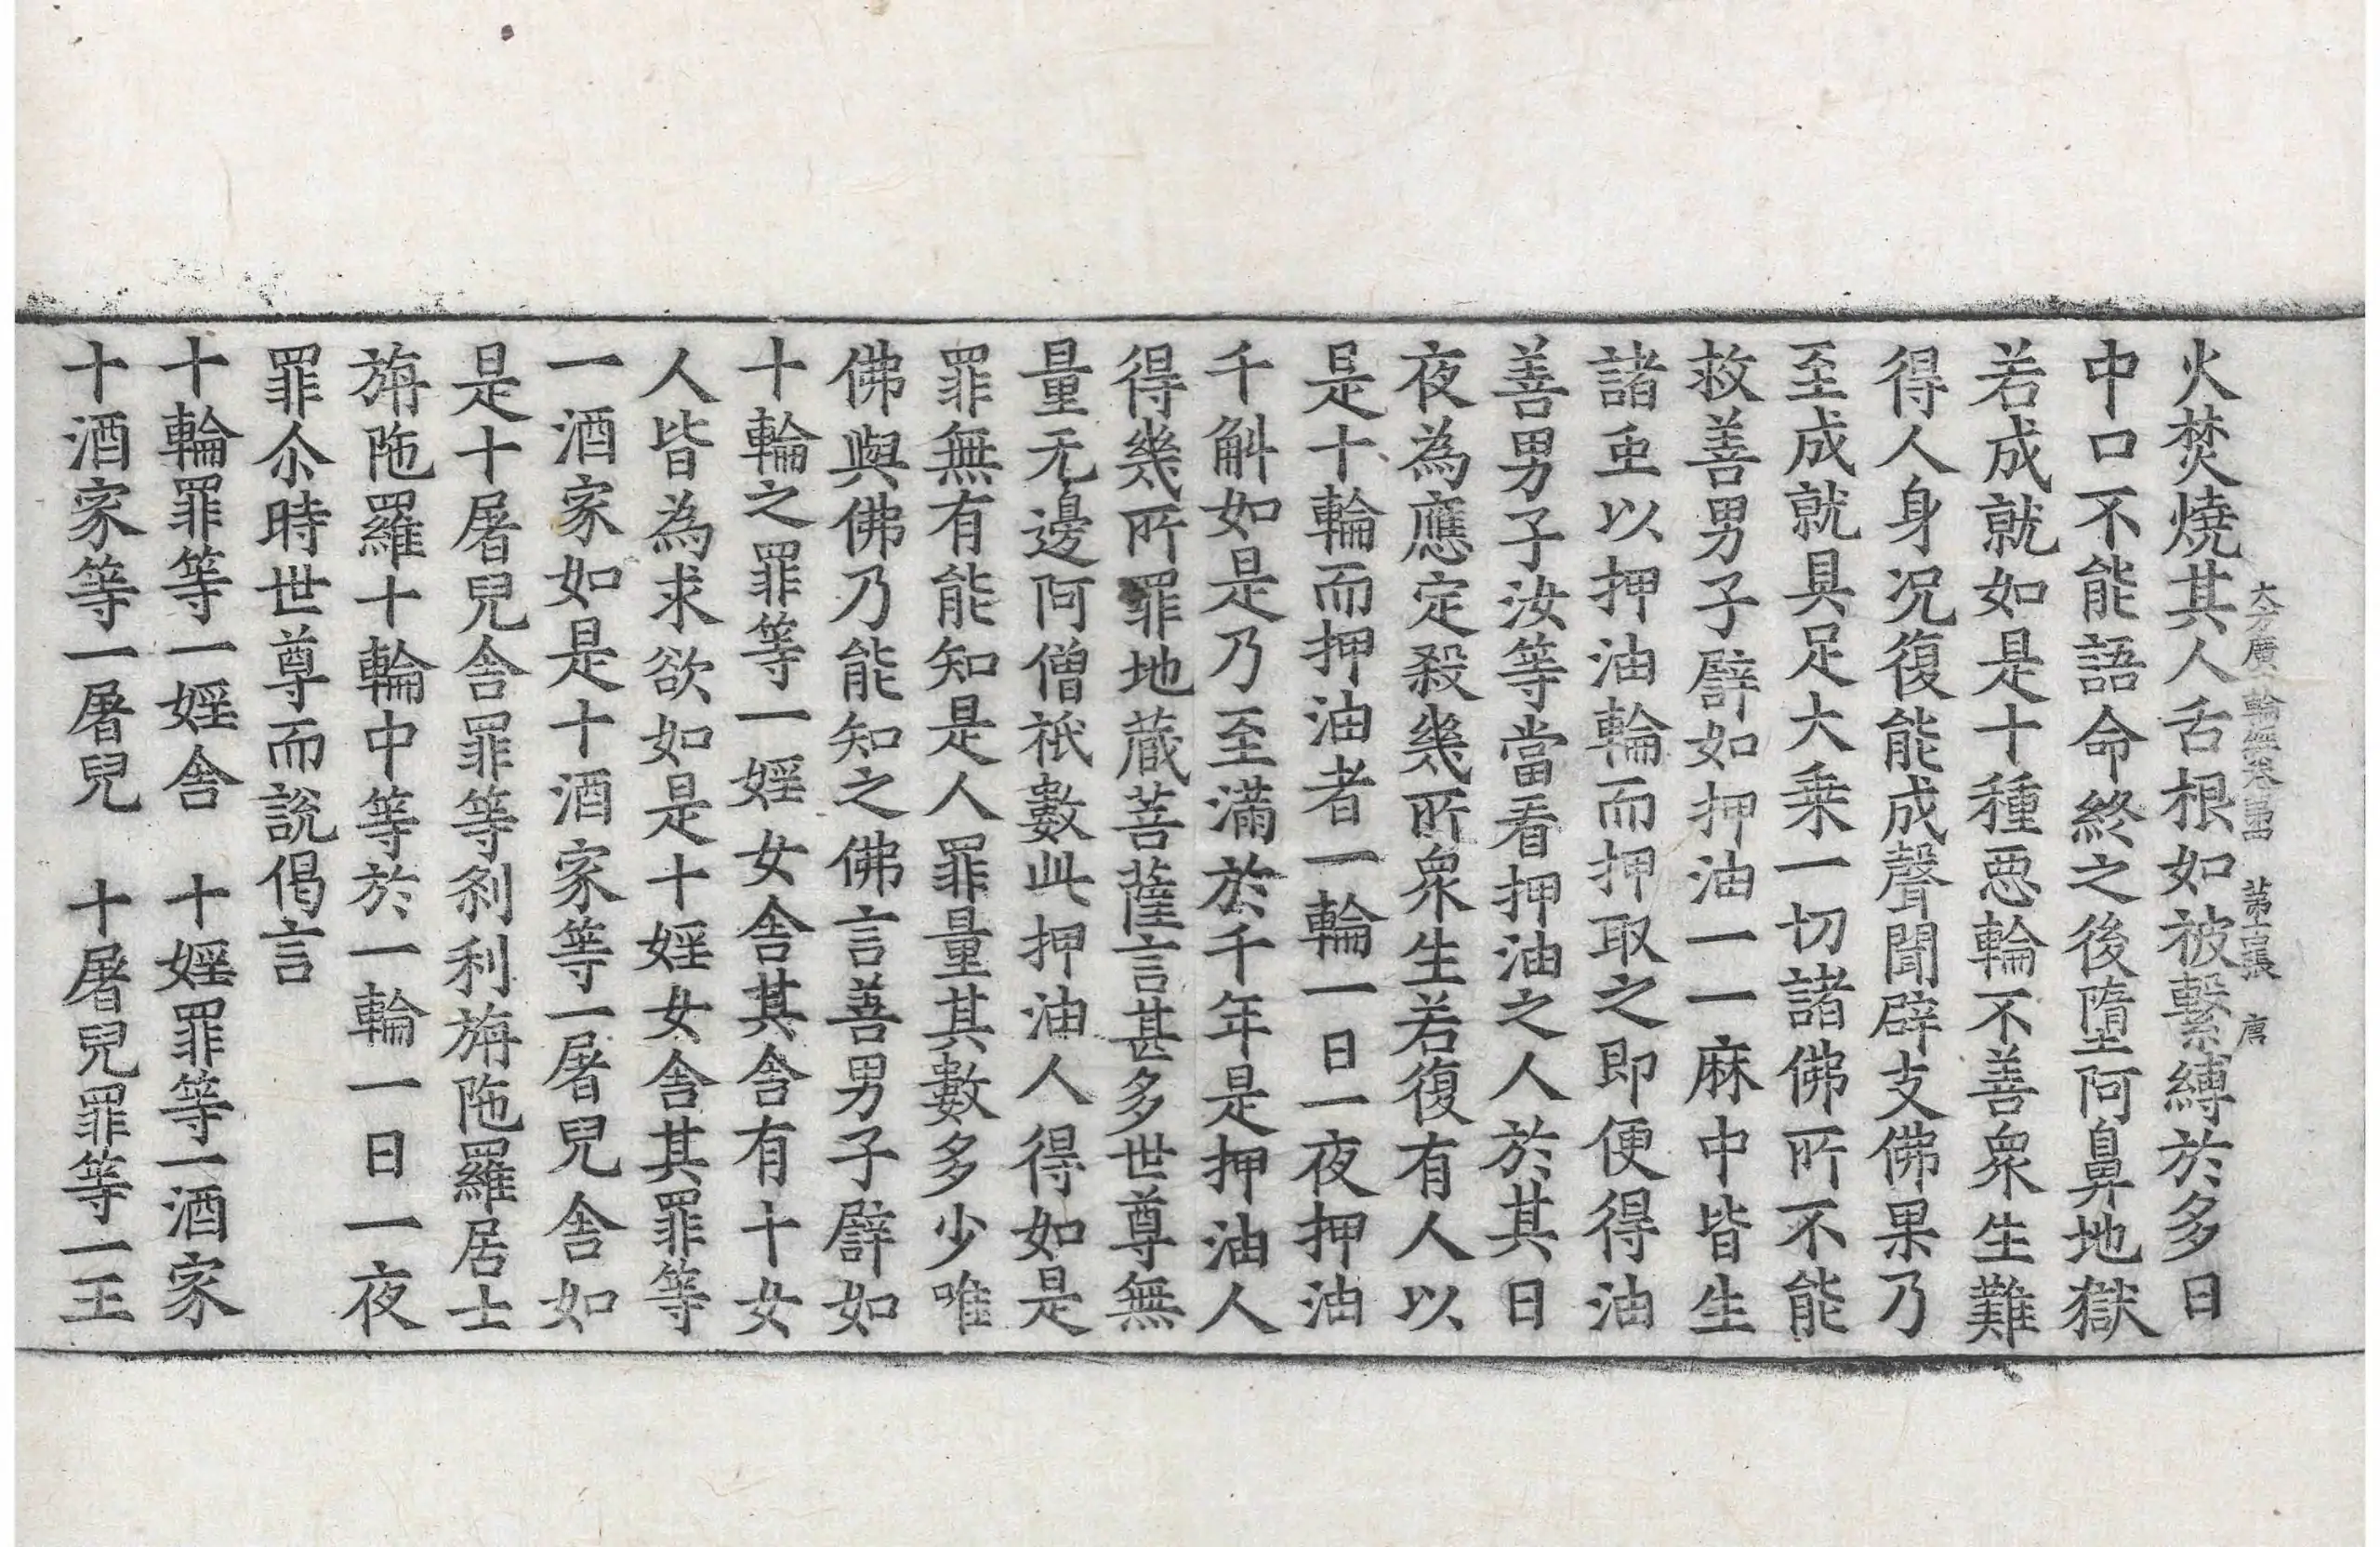 大方廣十輪經卷第四　第十五張　唐
火焚燒其人舌根如被繫縛於多日
中口不能語命終之後墮阿鼻地獄
若成就如是十種惡輪不善衆生難
得人身况復能成聲聞辟支佛果乃
至成就具足大乘一切諸佛所不能
救善男子譬如押油一一麻中皆生
諸虫以押油輪而押取之即便得油
善男子汝等當看押油之人於其日
夜為應定殺幾所衆生若復有人以
是十輪而押油者一輪一日一夜押油
千斛如是乃至滿於千年是押油人
得幾所罪地藏菩薩言甚多世尊無
量无邊阿僧祇數此押油人得如是
罪無有能知是人罪量其數多少唯
佛與佛乃能知之佛言善男子譬如
十輪之罪等一婬女舍其舍有十女
人皆為求欲如是十婬女舍其罪等
一酒家如是十酒家等一屠兒舍如
是十屠兒舍罪等刹利旃陁羅居士
旃陁羅十輪中等於一輪一日一夜
罪尒時世尊而說偈言
十輪罪等一婬舍　十婬罪等一酒家
十酒家等一屠兒　十屠兒罪等一王